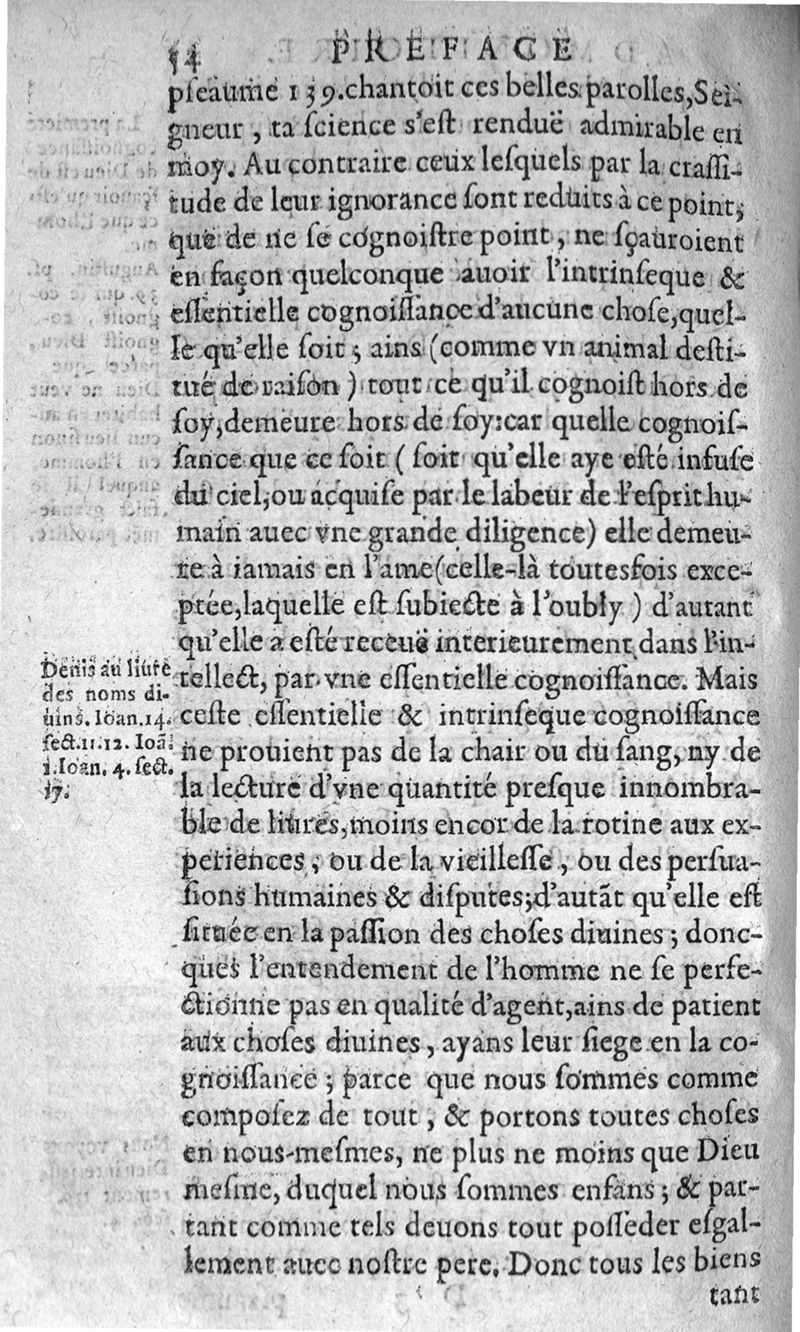 54 PREFACE
pſeaume 139.chantoit ces belles parolles,Sei-
gneur , ta ſcience s'eſt renduë admirable en
moy. Au contraire ceux leſquels par la craſſi-
tude de leur ignorance ſont reduits à ce point,
que de ne ſe cognoiſtre point , ne ſçauroient
en façon quelconque auoir l'intrinſeque &
eſſentielle cognoiſſance d'aucune choſe,quel-
le qu'elle ſoit ; ains (comme vn animal deſti-
tué de raiſon ) tout ce qu'il cognoiſt hors de
ſoy,demeure hors de ſoy:car quelle cognoiſ-
ſance que ce ſoit ( ſoit qu'elle aye eſté infuſe
du ciel,ou acquiſe par le labeur de l'eſprit hu-
main auec vne grande diligence) elle demeu-
re à iamais en l'ame(celle-là toutesfois exce-
ptée,laquelle eſt ſubiecte à l'oubly ) d'autant
qu'elle a eſté receuë interieurement dans l'in-
tellect, par vne eſſentielle cognoiſſance. Mais
ceſte eſſentielle & intrinſeque cognoiſſance
ne prouient pas de la chair ou du ſang, ny de
la lecture d'vne quantité preſque innombra-
ble de liures,moins encor de la rotine aux ex-
periences , ou de la vieilleſſe , ou des perſua-
ſions humaines & diſputes;d'autãt qu'elle eſt
ſituée en la paſſion des choſes diuines ; donc-
ques l'entendement de l'homme ne ſe perfe-
ctionne pas en qualité d'agent,ains de patient
aux choſes diuines , ayans leur ſiege en la co-
gnoiſſance ; parce que nous ſommes comme
compoſez de tout , & portons toutes choſes
en nous-meſmes, ne plus ne moins que Dieu
meſme, duquel nous ſommes enfans ; & par-
tant comme tels deuons tout poſſeder eſgal-
lement auec noſtre pere. Donc tous les biens
tant
Denis au liure
des noms di-
uins. Ioan. 14.
ſect. 11. 12. Ioã.
1. Ioan. 4. ſect.
17.